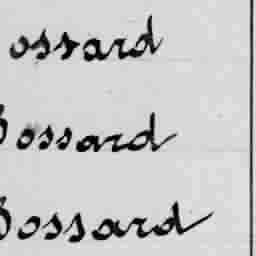 ossard
Bossard
Bossard